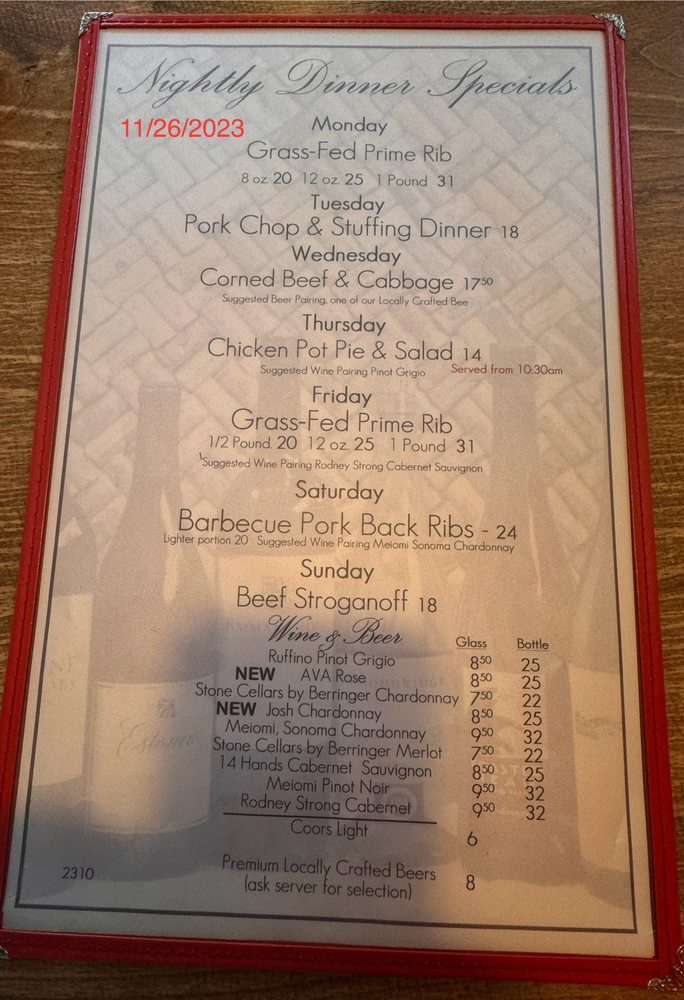 Nightly Dinner Specials
11/26/2023
Monday
Grass-Fed Prime Rib
8 oz. 20 12 oz. 25 1 Pound 31
Tuesday
Pork Chop & Stuffing Dinner 18
Wednesday
Corned Beef & Cabbage 17⁵⁰
Suggested Beer Pairing, one of our Locally Crafted Bee
Thursday
Chicken Pot Pie & Salad 14
Suggested Wine Pairing Pinot Grigio Served from 10:30am
Friday
Grass-Fed Prime Rib
1/2 Pound. 20 12 oz. 25 1 Pound 31
Suggested Wine Pairing Rodney Strong Cabernet Sauvignon
Saturday
Barbecue Pork Back Ribs - 24
Lighter portion 20 Suggested Wine Pairing Meiomi Sonoma Chardonnay
Sunday
Beef Stroganoff 18
Wine & Beer Glass Bottle
Ruffino Pinot Grigio 8⁵⁰ 25
NEW AVA Rose 8⁵⁰ 25
Stone Cellars by Berringer Chardonnay 7⁵⁰ 22
NEW Josh Chardonnay 8⁵⁰ 25
Meiomi, Sonoma Chardonnay 9⁵⁰ 32
Stone Cellars by Berringer Merlot 7⁵⁰ 22
14 Hands Cabernet Sauvignon 8⁵⁰ 25
Meiomi Pinot Noir 9⁵⁰ 32
Rodney Strong Cabernet 9⁵⁰ 32
Coors Light 6
Premium Locally Crafted Beers 8
(ask server for selection)
2310